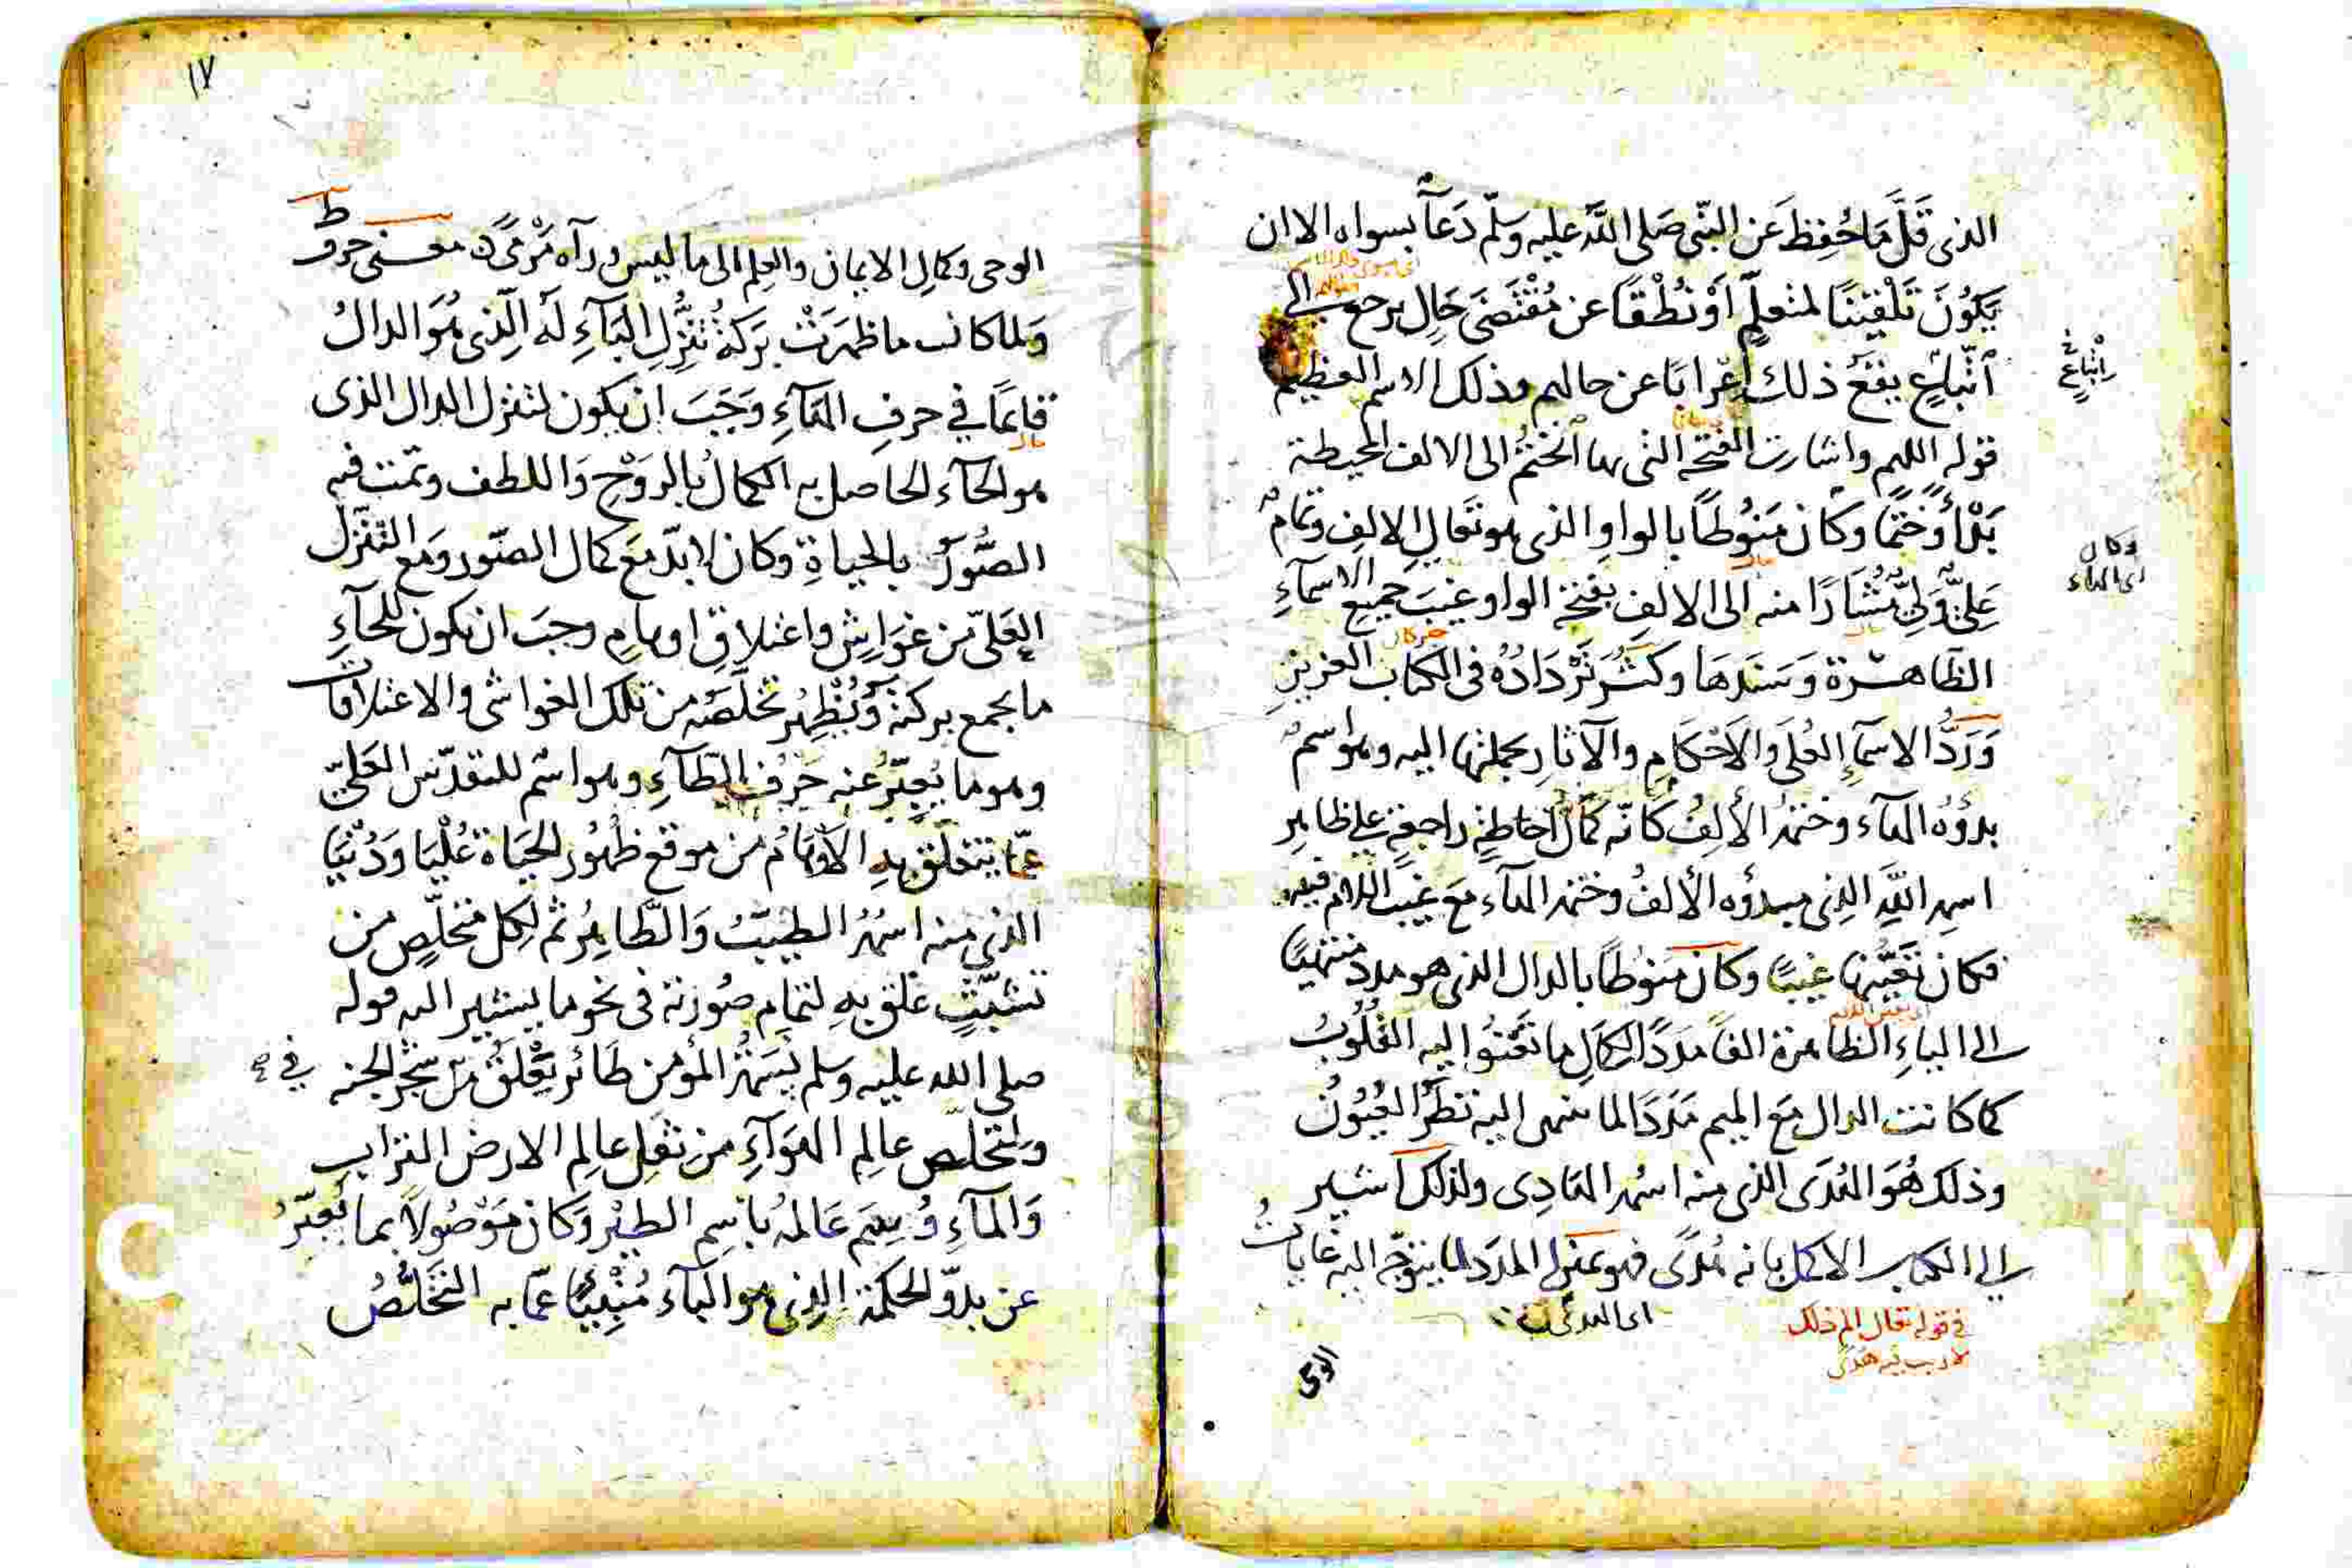 الذى قَلَّ مَا حُفِظَ عَن النّبى صَلى اللَّه عليه وسَلّم دَعَآ بسواه الا ان
يَكُونَ تَلْقِيْنًا لمتعلّمٍ أَوْ نُطْقًا عن مُقْتَضَى حَالٍ يرجع الى
اتّبَاعٍ يقعُ ذلك اِعْرابًا عن حالهم وذلك الاسم العظيم
قوله اللهم واشارت الفتحه التى بها الختمُ الى الالف المحيطة
بَدْأً وَخَتمًا وكَان مَنُوطًا بالواوِ الذى هو تَعَالِ الالفِ وتمامُ
عَلِىٍّ وَلِىٍّ مُشَارًا منه الى الالفِ بفتحة الواو غيبَ جميع الاسمآءِ
الظاهرة وَسَنَدَهَا وكَثُرَ تَرْدَادُهُ فى الكتاب العزيز
وَرَدُّ الاسمآءِ العُلَى وَالاَحْكَامِ والآثار بجملتها اليه وهو اسمٌ
بدؤُهُ الهاء وختمهُ الألِفُ كانّه كمَالُ احاطةٍ راجعةٍ على ظاهر
اسمِ اللَّهِ الذى مبدؤه الألفُ وختمه الهآء مَعَ غيبِ اللام فيه
فكان تعَيُّنها غيبًا وكان منوُطًا بالدال الذى هو مدد منتهيًا
الى الياءِ الظاهرة الفًا مَدَدًا لكمَالِ ما تَعْنُو اليه القُلُوبُ
كما كانت الدال مَع الميم مَدَدًا لما ينتهى اليه نَظَرُ العُيُونُ
وذلك هُوَ الهُدَى الذى منه اسمُه الهَادِى ولذلك اشير
الى الكتاب الاكمل بانه هُدًى فهو عَلى المدَد لما يتوجّه اليه غاياتُ
فى قوله تعال الم ذلك
لا ريب فيه هدى
اى الهدى
الوحى
اتباعٍ
وكان
اى الهاء
١٧
ط
الوحى وكمالِ الايمان والعِلمِ الى ما ليس ورآه مَرْمًى معنى حرف
وَلما كانت ما ظهرَتْ بَرَكةُ تنَزُّلِ البَآءِ لَه الَّذى هُوَ الدالُ
قايمًا في حرفِ الهَآءِ وَجَبَ ان يكون لتنزل الدال الذى
هو الحآء الحاصل به الكمالُ بالروَّحِ وَاللطف وتمت فيه
الصُّوَرُ بالحياةِ وكان لا بدّ مَعَ كمال الصّور ومَع التنزل
العَلىّ من غوَاشٍ واعتلاقِ اوهامٍ وجبَ ان يكون للحآءِ
ما يجمع بركتَهُ وَيُظْهِرُ تخلّصَهُ من تلك الغواشى والاعتلاقات
وهو ما يُعبِّرُ عنه حَرْفُ الطّآءِ وهو اسْم للتقدّس العَلىّ
عمّا يتعَلّق بهِ الأوهَامُ من موقع ظُهُور الحَيَاة عُلْيَا وَدُنْيَا
الذى منه اسمُهُ الطيِّبُ وَالطّاهِرُ ثم لكل متخلّصٍ من
تشبّثٍ عَلِق بهِ لتمامِ صُوْرته فى نحو ما يشير اليه قوله
صلى الله عليه وسلم نَسَمَةُ المؤمن طَائر يَعْلَقُ من شجر الجنه
في
ولتخلّص عالمِ الهَوَآءِ من ثقلِ عالم الارض التراب
وَالمآءِ وُسِمَ عَالمُهُ باسِم الطيْر وَكان مَوْصُولاً بما يُعبّرُ
عن بدوّ الحكمة الذى هو اليآء مُنْبِئًا عمّا به التَخَلُّصُ